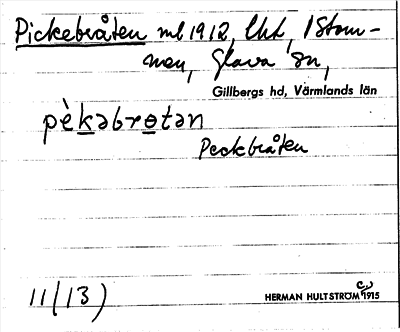 Pickebråten ml 1912, lht, 1 Stom-
men, Glava sn,
Gillbergs hd, Värmlands län
pèkabrotan
Peckbråten
11(13)
HERMAN HULTSTRÖM 1915